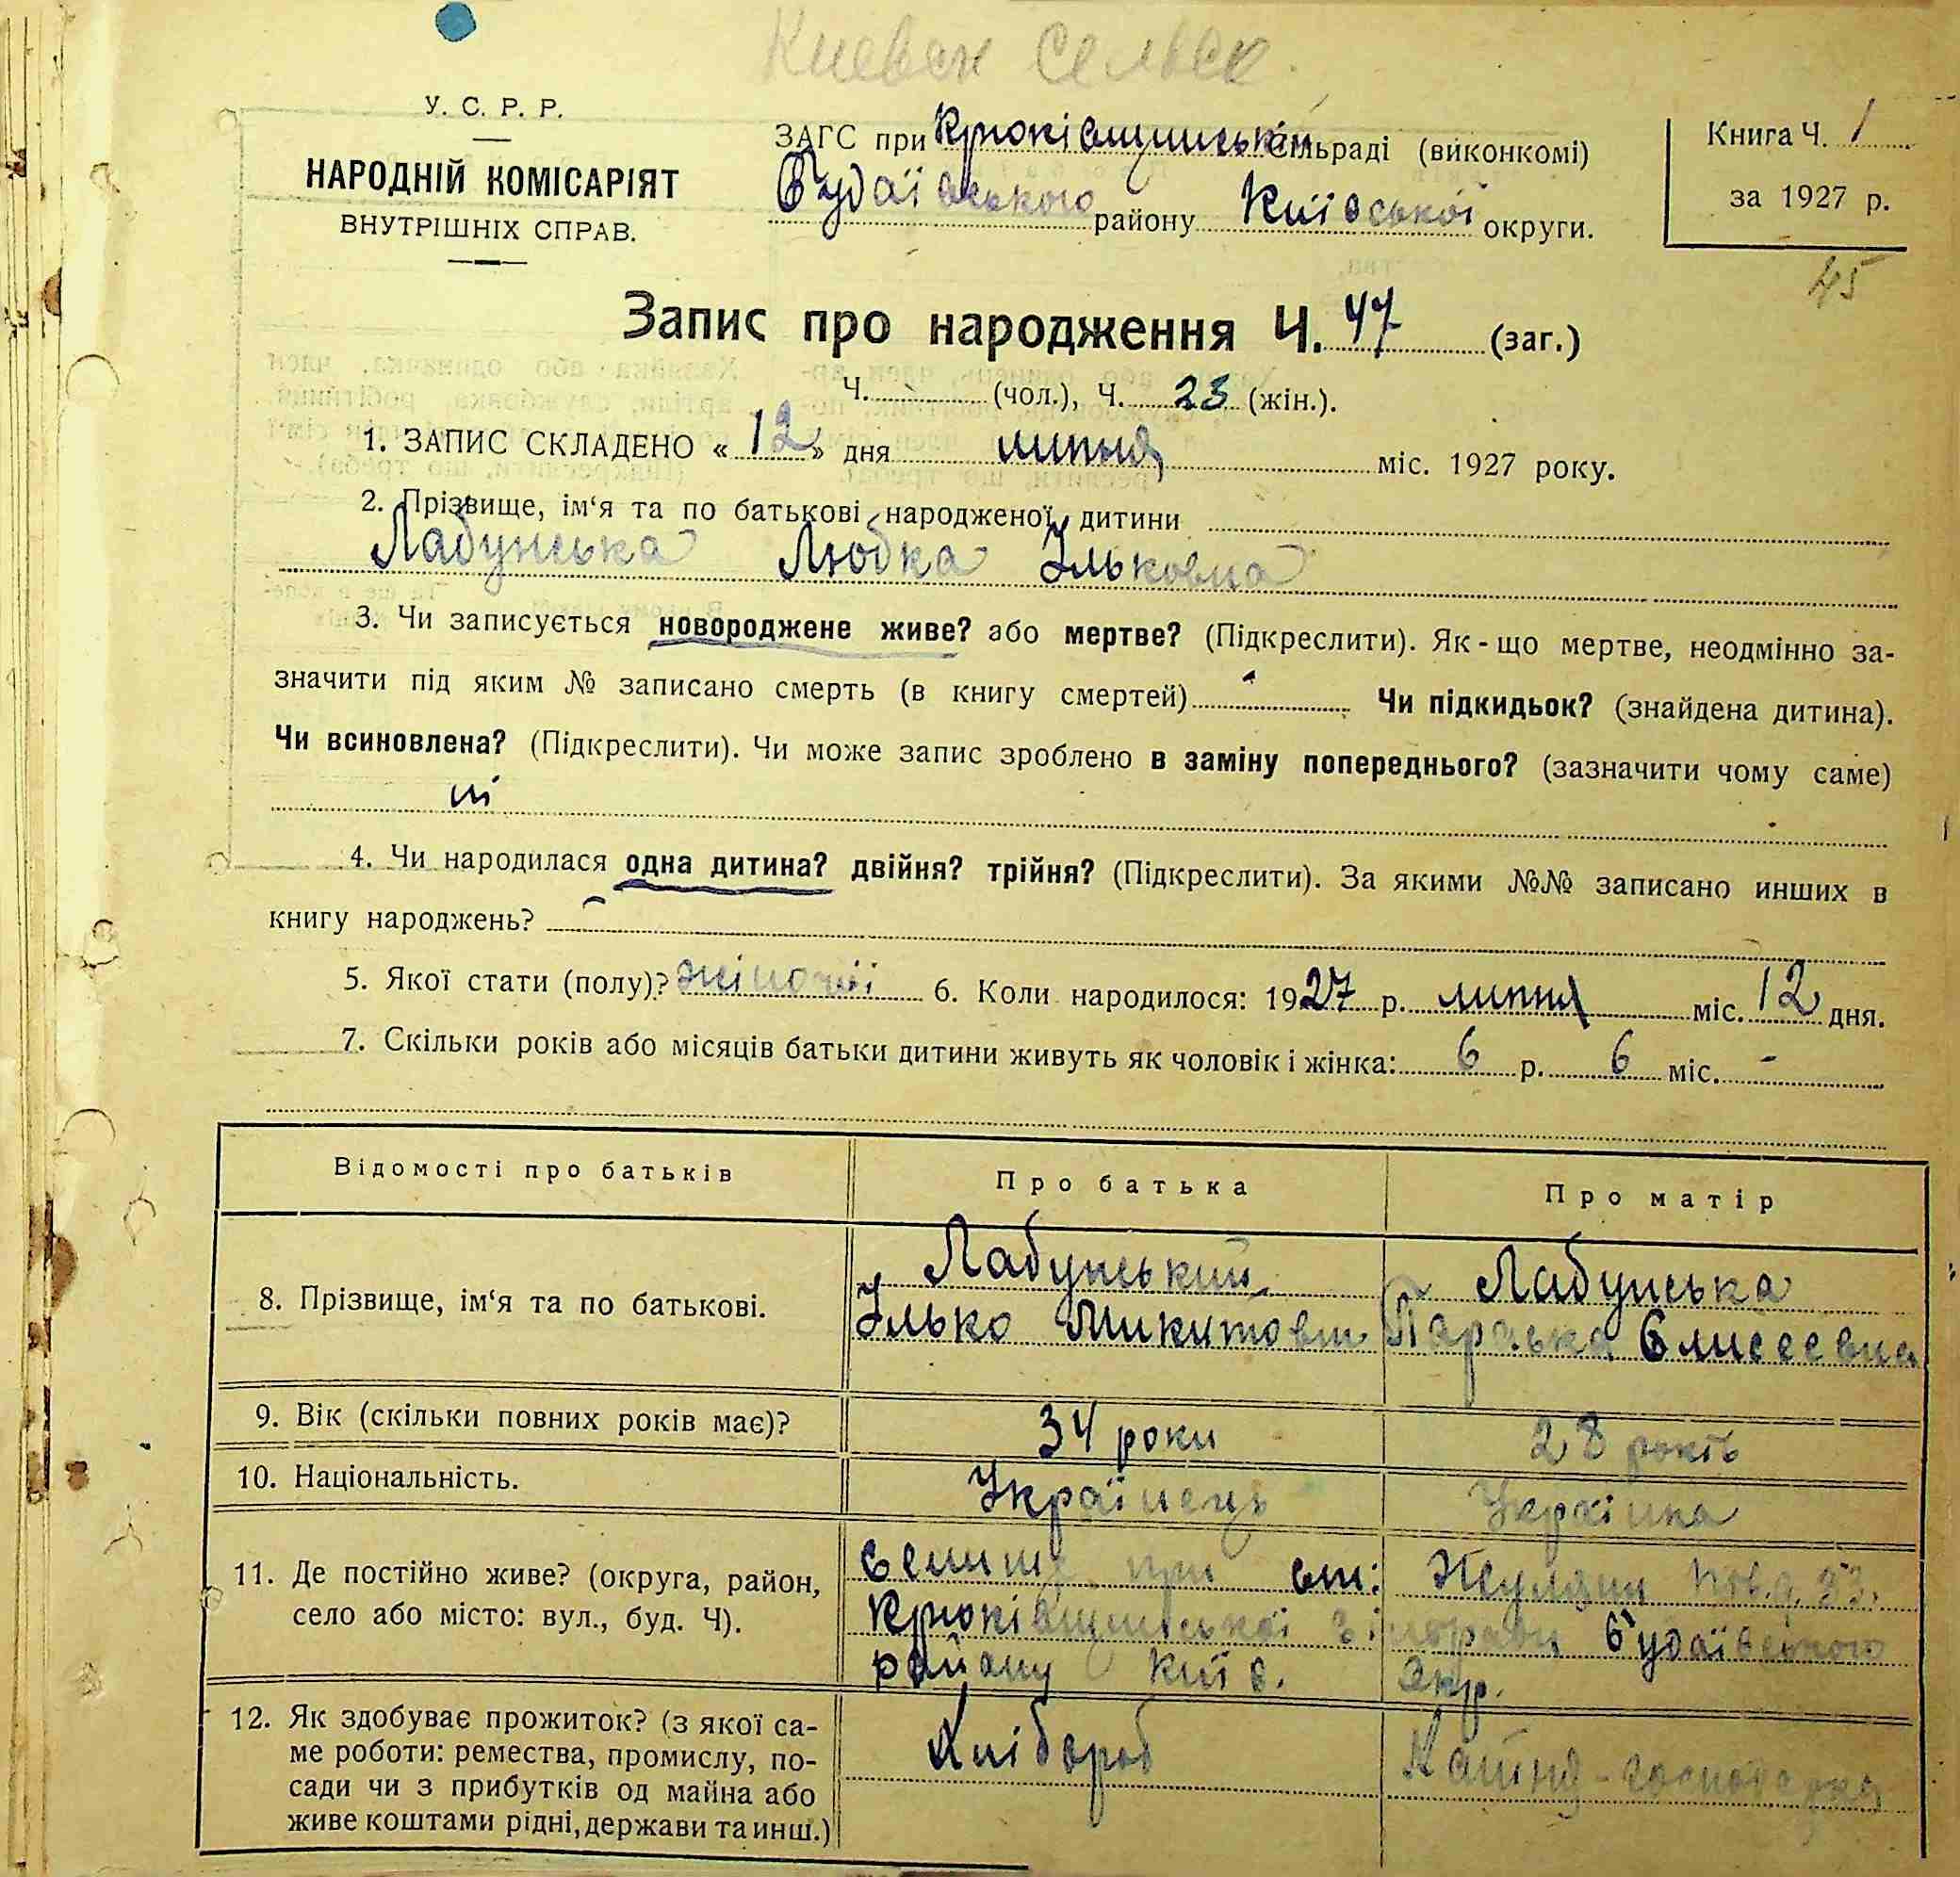 Киевск Сельск.
У. С. Р. Р.
НАРОДНІЙ КОМІСАРІЯТ
ВНУТРІШНІХ СПРАВ.
ЗАГС при Крюківщинській сільраді (виконкомі)
Будаївського району Київської округи.
Книга Ч. 1
за 1927 р.
45
Запис про народження Ч. 47 (заг.)
Ч. (чол.), Ч. 23 (жін.).
1. ЗАПИС СКЛАДЕНО « 12 » дня липня міс. 1927 року.
2. Прізвище, ім‘я та по батькові народженої дитини
Лабунська Любка Ільковна
3. Чи записується новороджене живе? або мертве? (Підкреслити). Як-що мертве, неодмінно за-
значити під яким № записано смерть (в книгу смертей) - Чи підкидьок? (знайдена дитина).
Чи всиновлена? (Підкреслити). Чи може запис зроблено в заміну попереднього? (зазначити чому саме)
ні
4. Чи народилася одна дитина? двійня? трійня? (Підкреслити). За якими №№ записано инших в
книгу народжень? -
5. Якої стати (полу)? жіночої 6. Коли народилося: 1927 р. липня міс. 12 дня.
7. Скільки років або місяців батьки дитини живуть як чоловік і жінка: 6 р. 6 міс. -
Відомості про батьків
Про батька
Про матір
8. Прізвище, ім‘я та по батькові.
Лабунський
Ілько Микитович
Лабунська
Параска Єлисеевна
9. Вік (скільки повних років має)?
34 роки
28 років
10. Національність.
Українець
Українка
11. Де постійно живе? (округа, район,
село або місто: вул., буд. Ч).
селище при ст: Жуляни
Крюківщинської сільради Будаївського
району Київ. окр.
12. Як здобуває прожиток? (з якої са-
ме роботи: ремества, промислу, по-
сади чи з прибутків од майна або
живе коштами рідні, держави та инш.)
Хлібороб
господарка